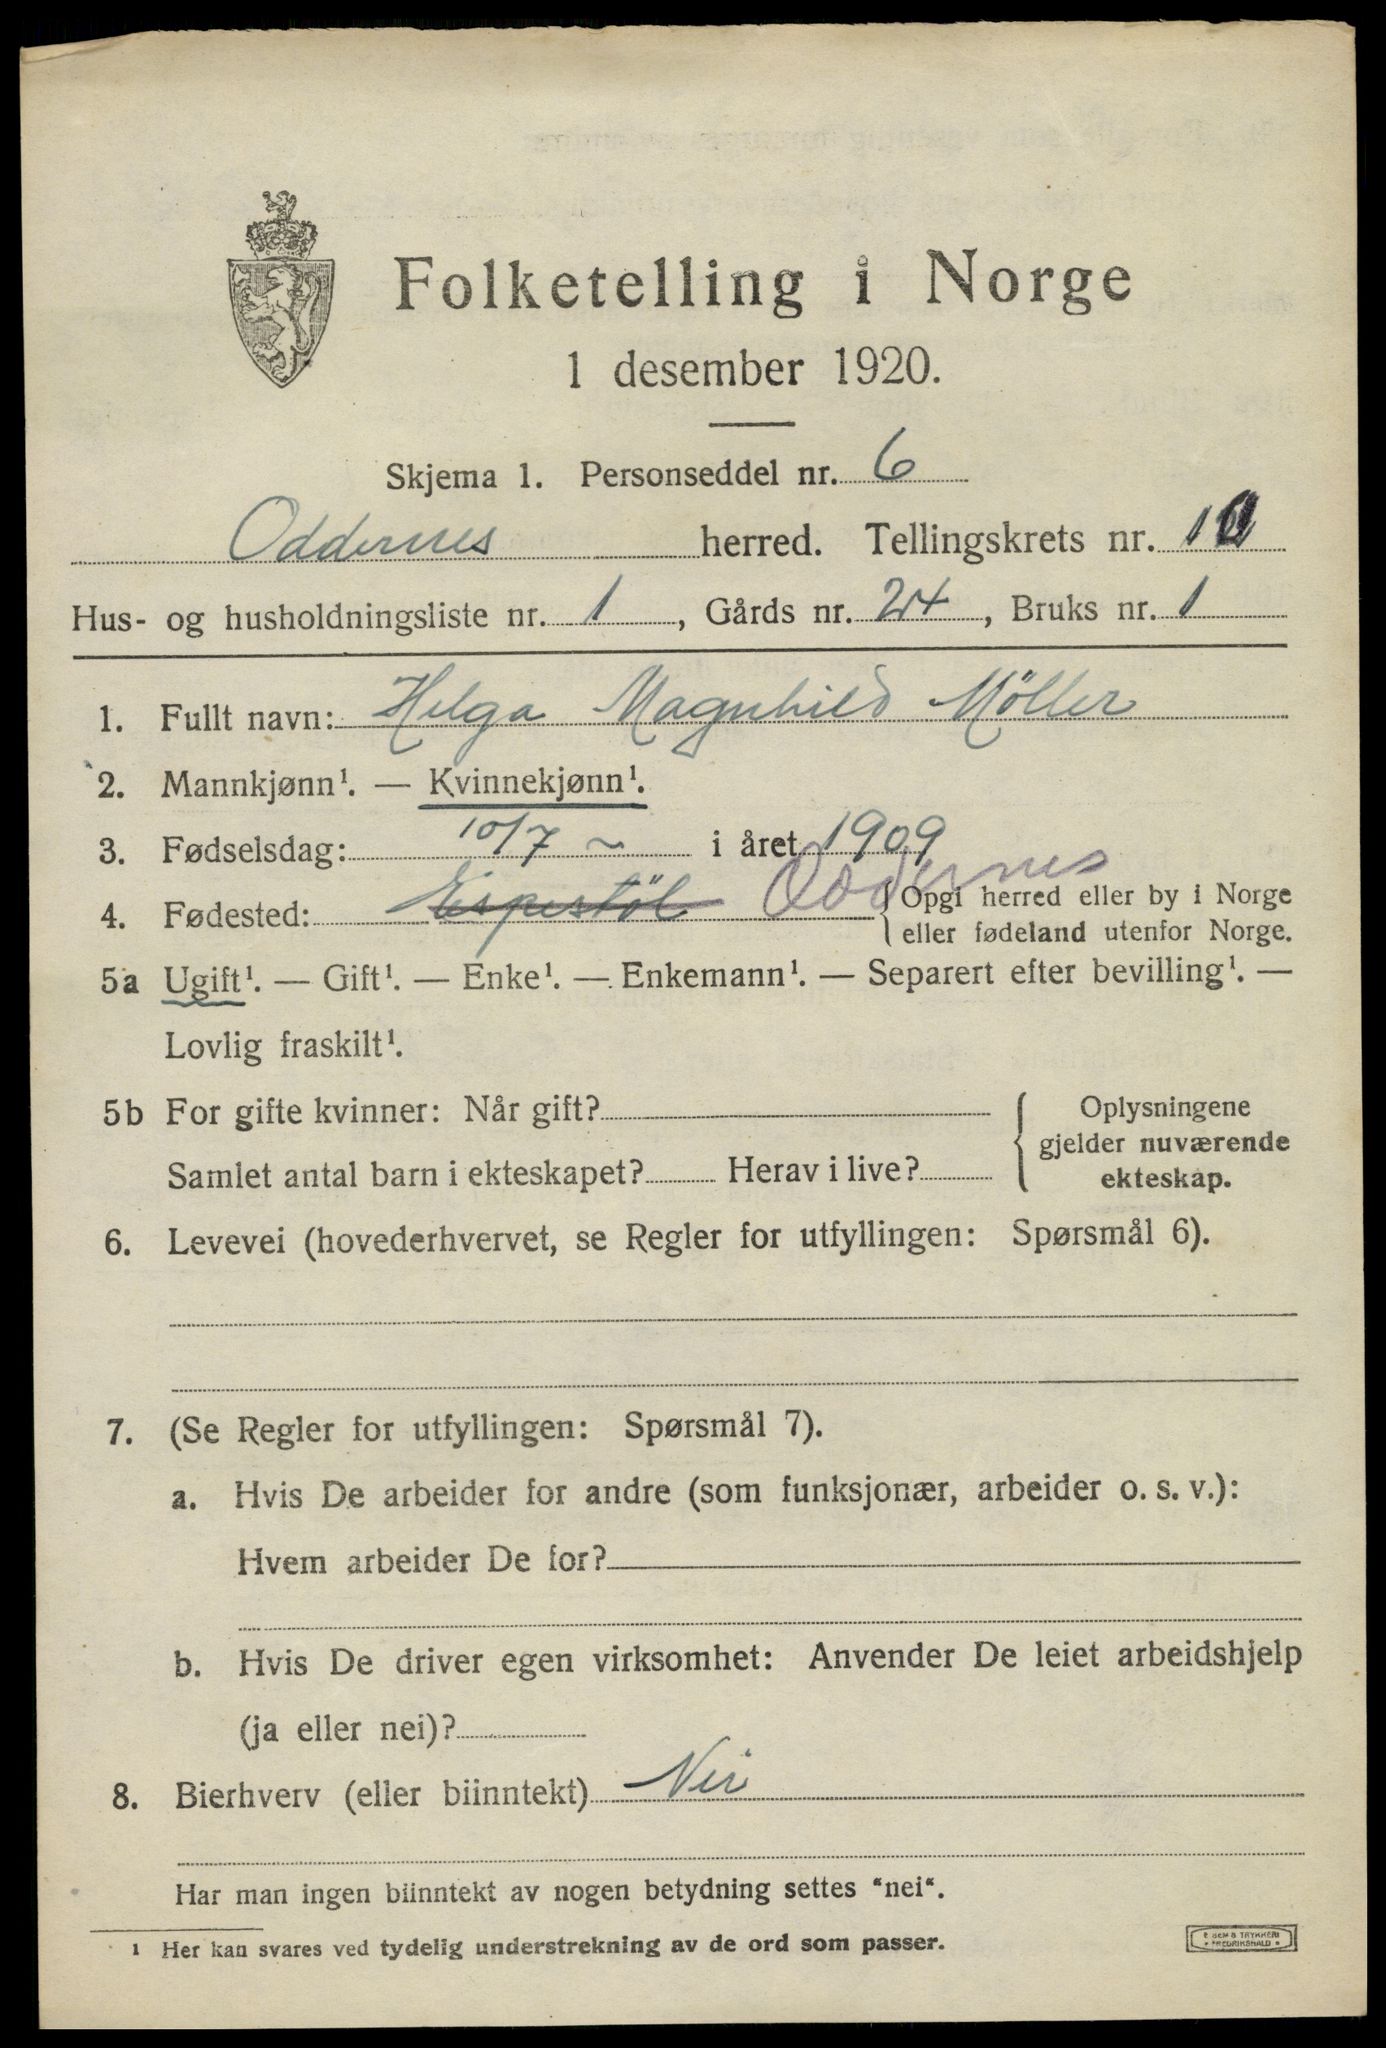 Folketelling i Norge
1 desember 1920.
Skjema 1. Personseddel nr. 6
Oddernes herred. Tellingskrets nr. 10
Hus- og husholdningsliste nr. 1, Gårds nr. 24, Bruks nr. 1
1. Fullt navn: Helga Magnhild Möller
2. Mannkjønn¹. — Kvinnekjønn¹.
3. Fødselsdag: 10/7 ~ i året 1909
4. Fødested: Espestöl Oddernes { Opgi herred eller by i Norge
eller fødeland utenfor Norge.
5a Ugift¹. — Gift¹. — Enke¹. — Enkemann¹. — Separert efter bevilling¹. —
Lovlig fraskilt¹.
5b For gifte kvinner: Når gift? { Oplysningene
gjelder nuværende
Samlet antal barn i ekteskapet? Herav i live? ekteskap.
6. Levevei (hovederhvervet, se Regler for utfyllingen: Spørsmål 6).
7. (Se Regler for utfyllingen: Spørsmål 7).
a. Hvis De arbeider for andre (som funksjonær, arbeider o. s. v.):
Hvem arbeider De for?
b. Hvis De driver egen virksomhet: Anvender De leiet arbeidshjelp
(ja eller nei)?
8. Bierhverv (eller biinntekt) Nei
Har man ingen biinntekt av nogen betydning settes "nei".
¹ Her kan svares ved tydelig understrekning av de ord som passer.
TRYKKERI
FREDRIKSHALD